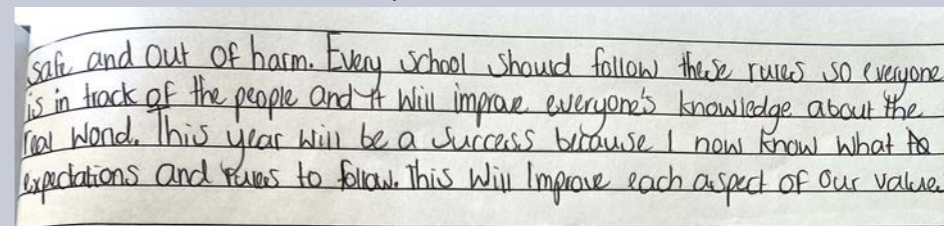 safe and out of harm. Every school should follow these rules so everyone
is in track of the people and it will improve everyone's knowledge about the
real word. This year will be a success because I now know what to
expectations and rules to follow. This will Improve each aspect of our value.